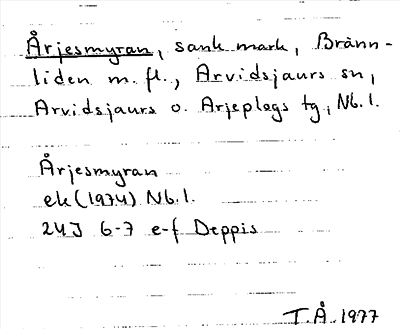 Årjesmyran, sank mark, Bränn-
liden m. fl., Arvidsjaurs sn,
Arvidsjaurs o. Arjeplogs tg, Nb. l.
Årjesmyran
ek (1974) Nb. l.
24J 6-7 e-f Deppis
T.Å. 1977